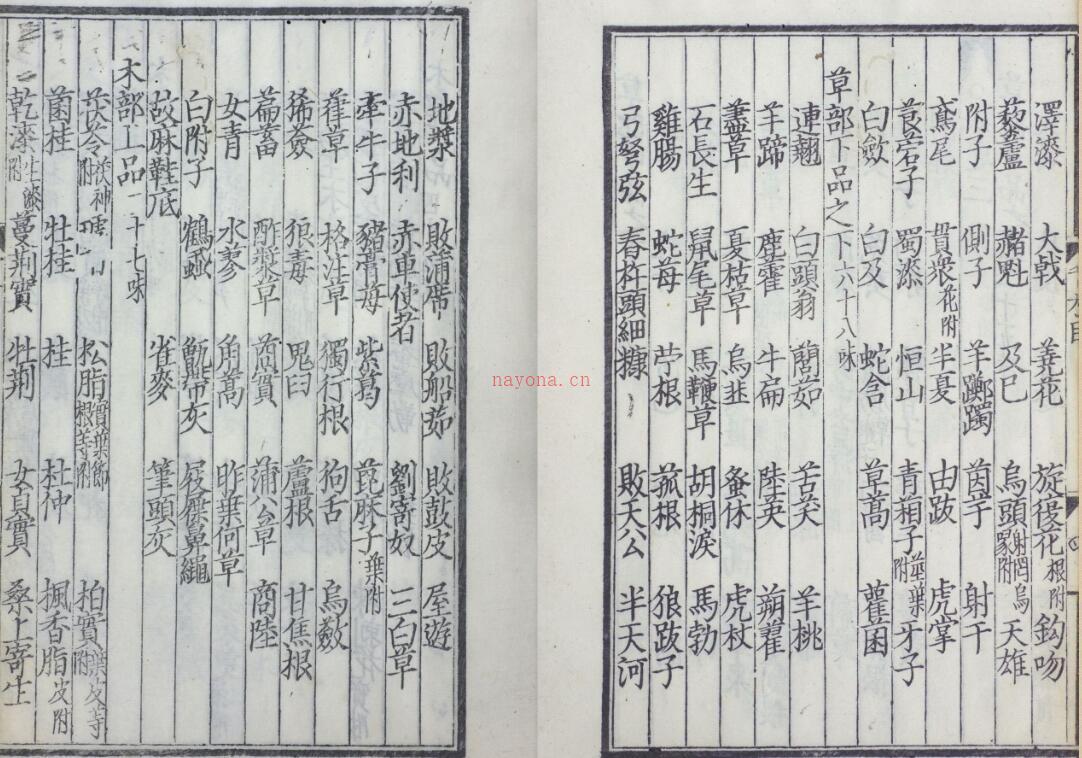 澤漆 大戟 蕘花 旋復花根附 鈎吻
藜蘆 赭魁 及已 烏頭射罔烏喙附 天雄
附子 側子 羊躑躅 茵芋 射干
鳶尾 貫衆花附 半夏 由跋 虎掌
莨菪子 蜀漆 恒山 青葙子莖葉附 牙子
白斂 白及 蛇含 草蒿 雚菌
草部下品之下六十八味
連翹 白頭翁 䕡茹 苦芺 羊桃
羊蹄 鹿藿 牛扁 陸英 蒴藋
藎草 夏枯草 烏韭 蚤休 虎杖
石長生 鼠尾草 馬鞭草 胡桐淚 馬勃
雞腸 蛇莓 苧根 菰根 狼跋子
弓弩弦 春杵頭細糠 敗天公 半天河
地漿 敗蒲席 敗船茹 敗鼓皮 屋遊
赤地利 赤車使者 劉寄奴 三白草
牽牛子 猪膏莓 紫葛 蓖麻子葉附
葎草 格注草 獨行根 狗舌 烏蘞
豨薟 狼毒 鬼臼 蘆根 甘蕉根
萹蓄 酢漿草 苘實 蒲公草 商陸
女青 水蓼 角蒿 昨葉何草
白附子 鶴虱 甑帶灰 屐屧鼻繩
故麻鞋底 雀麥 筆頭灰
木部上品十七味
茯苓茯神附 松脂實葉節根等附 柏實葉皮等附
菌桂 牡桂 桂 杜仲 楓香脂皮附
乾漆生漆附 蔓荆實 牡荆 女貞實 桑上寄生
nayona.cn